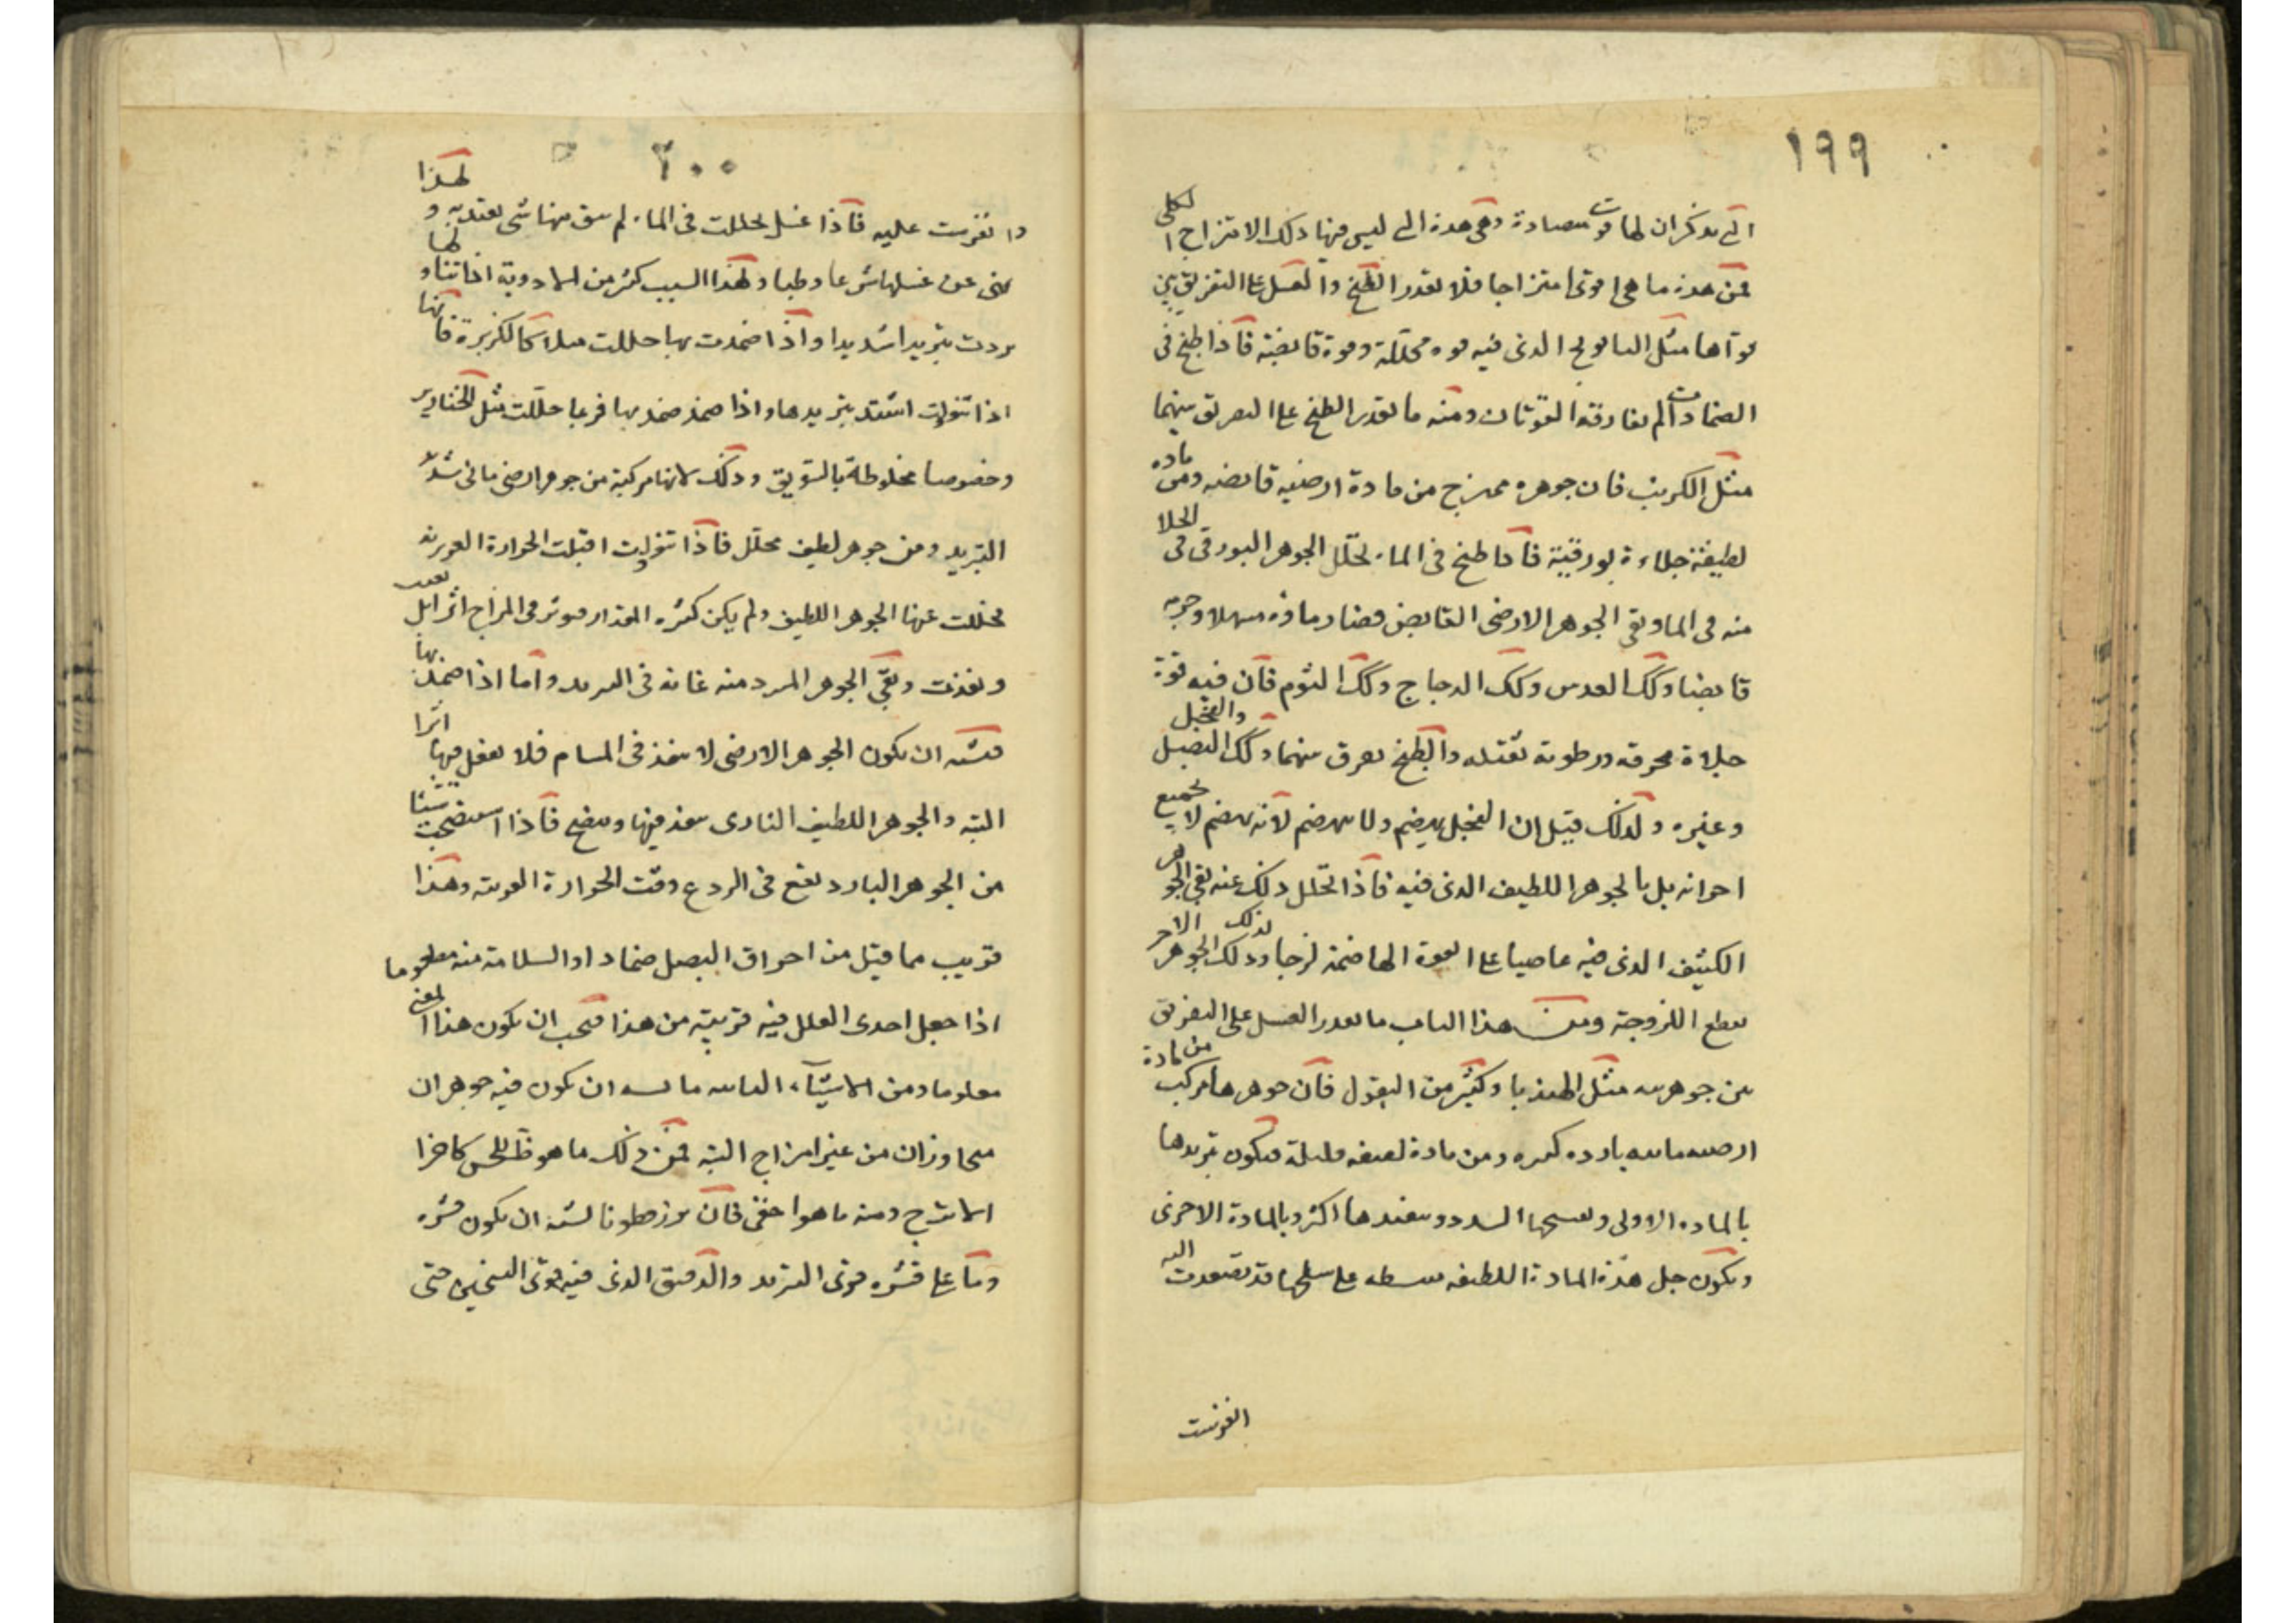 ١٩٩
التى يذكران لها قوت متضادة وهى هذه التى ليس فيها ذلك الامتزاج الكلى
فمن هذه ما هى اقوى امتزاجا فلا يقدر الطبخ والغسل على التفريق بين
قواها مثل البابونج الذى فيه قوة محللة وقوة قابضة فاذا طبخ فى
الضمادات لم يفارقه القوتان ومنه ما يقدر الطبخ على التفريق بينهما
مثل الكرنب فان جوهره ممتزج من مادة ارضيه قابضه ومن مادة
لطيفة جلاءة بورقية فاذا طبخ فى الماء تحلل الجوهر البورقى الجلا
منه فى الما وبقى الجوهر الارضى القابض فصار ماوه مسهلا وجرمه
قابضا وكك العدس وكك الدجاج وكك الثوم فان فيه قوة
جلاة محرقه ورطوبة ثقيله والطبخ يفرق بينهما وكك البصل والفجل
وغيره ولذلك قيل ان الفجل يهضم ولا ينهضم لانه يهضم لا بجميع
اجزائه بل بالجوهر اللطيف الذى فيه فاذا تحلل ذلك عنه بقى الجوهر
الكثيف الذى فيه عاصيا على القوة الهاضمة لزجا وذلك الجوهر الاخر
يقطع اللزوجة ومن هذا الباب ما يقدر الغسل على التفريق
بين جوهريه مثل الهندبا وكثير من البقول فان جوهرها مركب من مادة
ارضيه مائيه بارده كثيره ومن مادة لطيفه قليلة فيكون تبريدها
بالماده الاولى وتفتيحها السدد وتنفيذها اكثر بالمادة الاخرى
ويكون جل هذه المادة اللطيفه منبسطه على سطحها قد تصعدت اليه
انفرشت
٢٠٠
وانفرشت عليه فاذا غسل تحللت فى الماء لم يبق منها شى يعتد به ولهذا
نهى عن غسلها شرعا وطبا ولهذا السبب كثير من الادوية اذا تناولها
بردت تبريدا شديدا واذا ضمدت بها حللت مثلا كالكزبرة فانها
اذا تنولت اشتد تبريدها واذا ضمد ضمد بها فربما حللت مثل الخنازير
وخصوصا مخلوطة بالسويق وذلك لانها مركبة من جوهر ارضى مائى شديد
التبريد ومن جوهر لطيف محلل فاذا تنولت اقبلت الحرارة الغريزيه
فحللت عنها الجوهر اللطيف ولم يكن كثيره المقدار فيوثر فى المزاج اثرا بل بعدت
ونفذت وبقى الجوهر المبرد منه غاية فى التبريد واما اذا ضمد بها
فيشبه ان يكون الجوهر الارضى لا ينفذ فى المسام فلا يفعل فيها اثرا
البته والجوهر اللطيف النارى ينفذ فيها وينضج فاذا استصحبت شيئا
من الجوهر البارد نفع فى الردع وقت الحرارة الغريبه وهذا
قريب مما قيل من احراق البصل ضمادا والسلامة منه مطعوما
اذا جعل احدى العلل فيه قريبة من هذا فيجب ان يكون هذا المعنى
معلوما ومن الاشيآء الغذائيه ما يشبه ان يكون فيه جوهران
متجاوران من غير امتزاج البته فمن ذلك ما هو ظ للحس كاجزا
الاترج ومنه ما هو اخفى فان بزر قطونا يشبه ان يكون قشره
وما على قشره قوى التبريد والدقيق الذى فيه قوى التسخين حتى